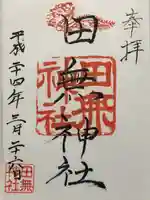 奉拝
田無神社
田無神社
平成二十四年三月二十六日
田無神社